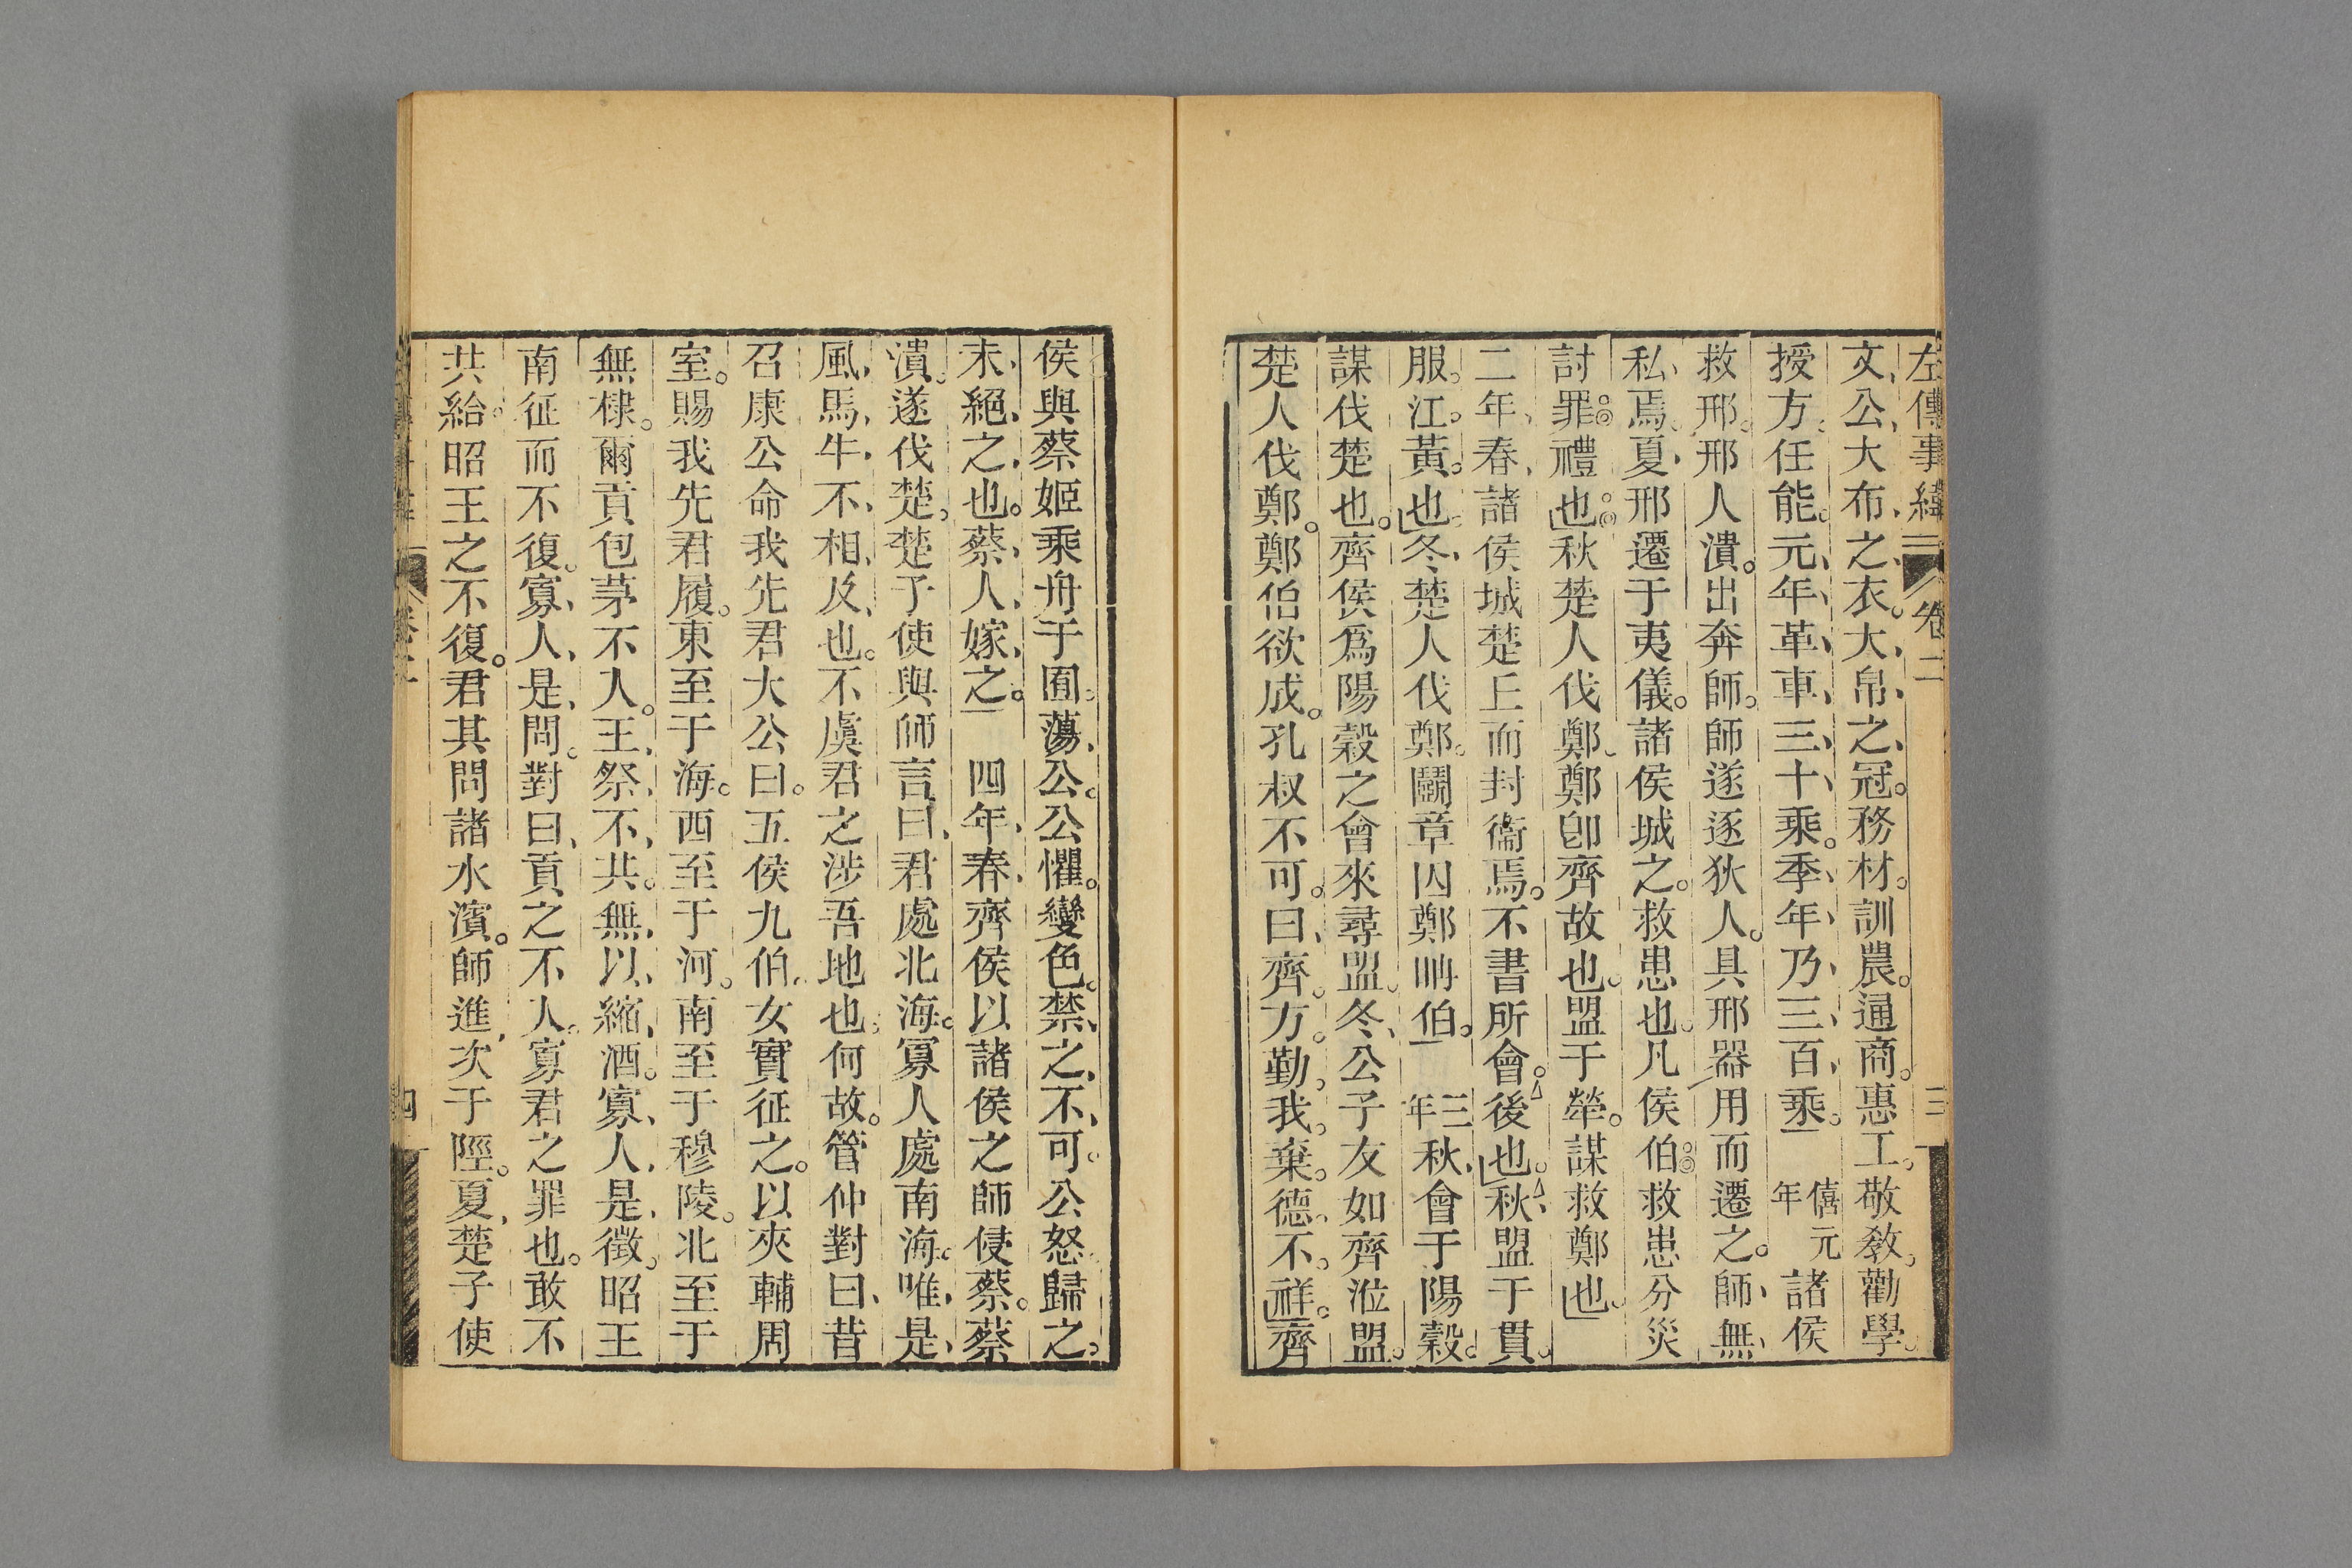 左傳事緯 卷二 三
文公大布之衣。大帛之冠。務材。訓農。通商。惠工。敬敎。勸學。
授方。任能。元年革車三十乘。季年乃三百乘。僖元年諸侯
救邢。邢人潰。出奔師。師遂逐狄人。具邢器用而遷之。師無
私焉。夏邢遷于夷儀。諸侯城之。救患也。凡侯伯救患分災
討罪禮也秋楚人伐鄭。鄭卽齊故也。盟于犖。謀救鄭也
二年春諸侯城楚丘而封衞焉。不書所會。後也秋盟于貫。
服江。黃。也冬楚人伐鄭。鬭章囚鄭耼伯。三年秋會于陽穀。
謀伐楚也。齊侯爲陽穀之會來尋盟。冬公子友如齊涖盟。
楚人伐鄭。鄭伯欲成。孔叔不可。曰齊。方。勤。我。棄。德。不。祥。齊
侯與蔡姬乘舟于囿。蕩公。公懼。變色。禁之不可。公怒歸之。
未絕之也。蔡人嫁之。四年春齊侯以諸侯之師侵蔡。蔡
潰。遂伐楚。楚子使與師言曰君處北海。寡人處南海。唯是
風馬牛不相及也。不虞君之涉吾地也。何故。管仲對曰昔
召康公命我先君大公曰。五侯九伯。女實征之。以夾輔周
室。賜我先君履。東至于海。西至于河。南至于穆陵。北至于
無棣。爾貢包茅不入。王祭不共。無以縮酒。寡人是徵。昭王
南征而不復。寡人是問。對曰貢之不入。寡君之罪也。敢不
共給。昭王之不復。君其問諸水濱。師進次于陘。夏楚子使
四